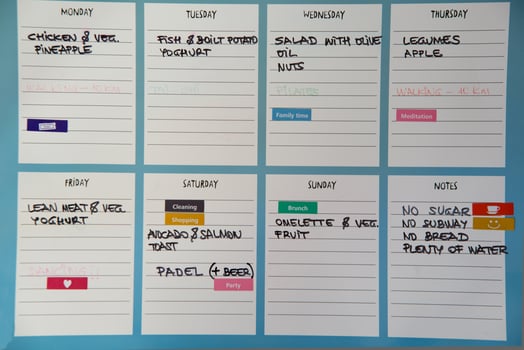 MONDAY
CHICKEN & VEG.
PINEAPPLE
WALKING - 10 KM
TUESDAY
FISH & BOILT POTATO
YOGHURT
WEDNESDAY
SALAD WITH OLIVE
OIL
NUTS
PILATES
Family time
THURSDAY
LEGUMES
APPLE
WALKING - 10 KM
Meditation
FRIDAY
LEAN MEAT & VEG.
YOGHURT
SATURDAY
Cleaning
Shopping
AVOCADO & SALMON
TOAST
PADEL (+ BEER)
Party
SUNDAY
Brunch
OMELETTE & VEG.
FRUIT
NOTES
NO SUGAR
NO SUBWAY
NO BREAD
PLENTY OF WATER